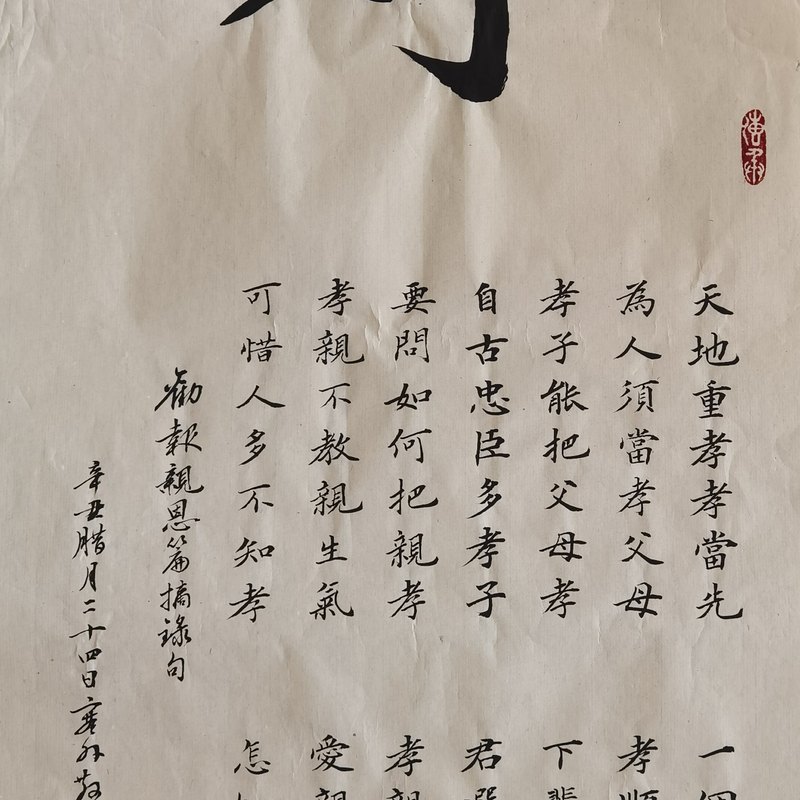 天地重孝孝當先
為人須當孝父母
孝子能把父母孝
自古忠臣多孝子
要問如何把親孝
孝親不教親生氣
可惜人多不知孝
一個
孝順
下輩
君選
孝親
愛親
怎
勸報親恩篇摘錄句
辛丑腊月二十四日寒外散